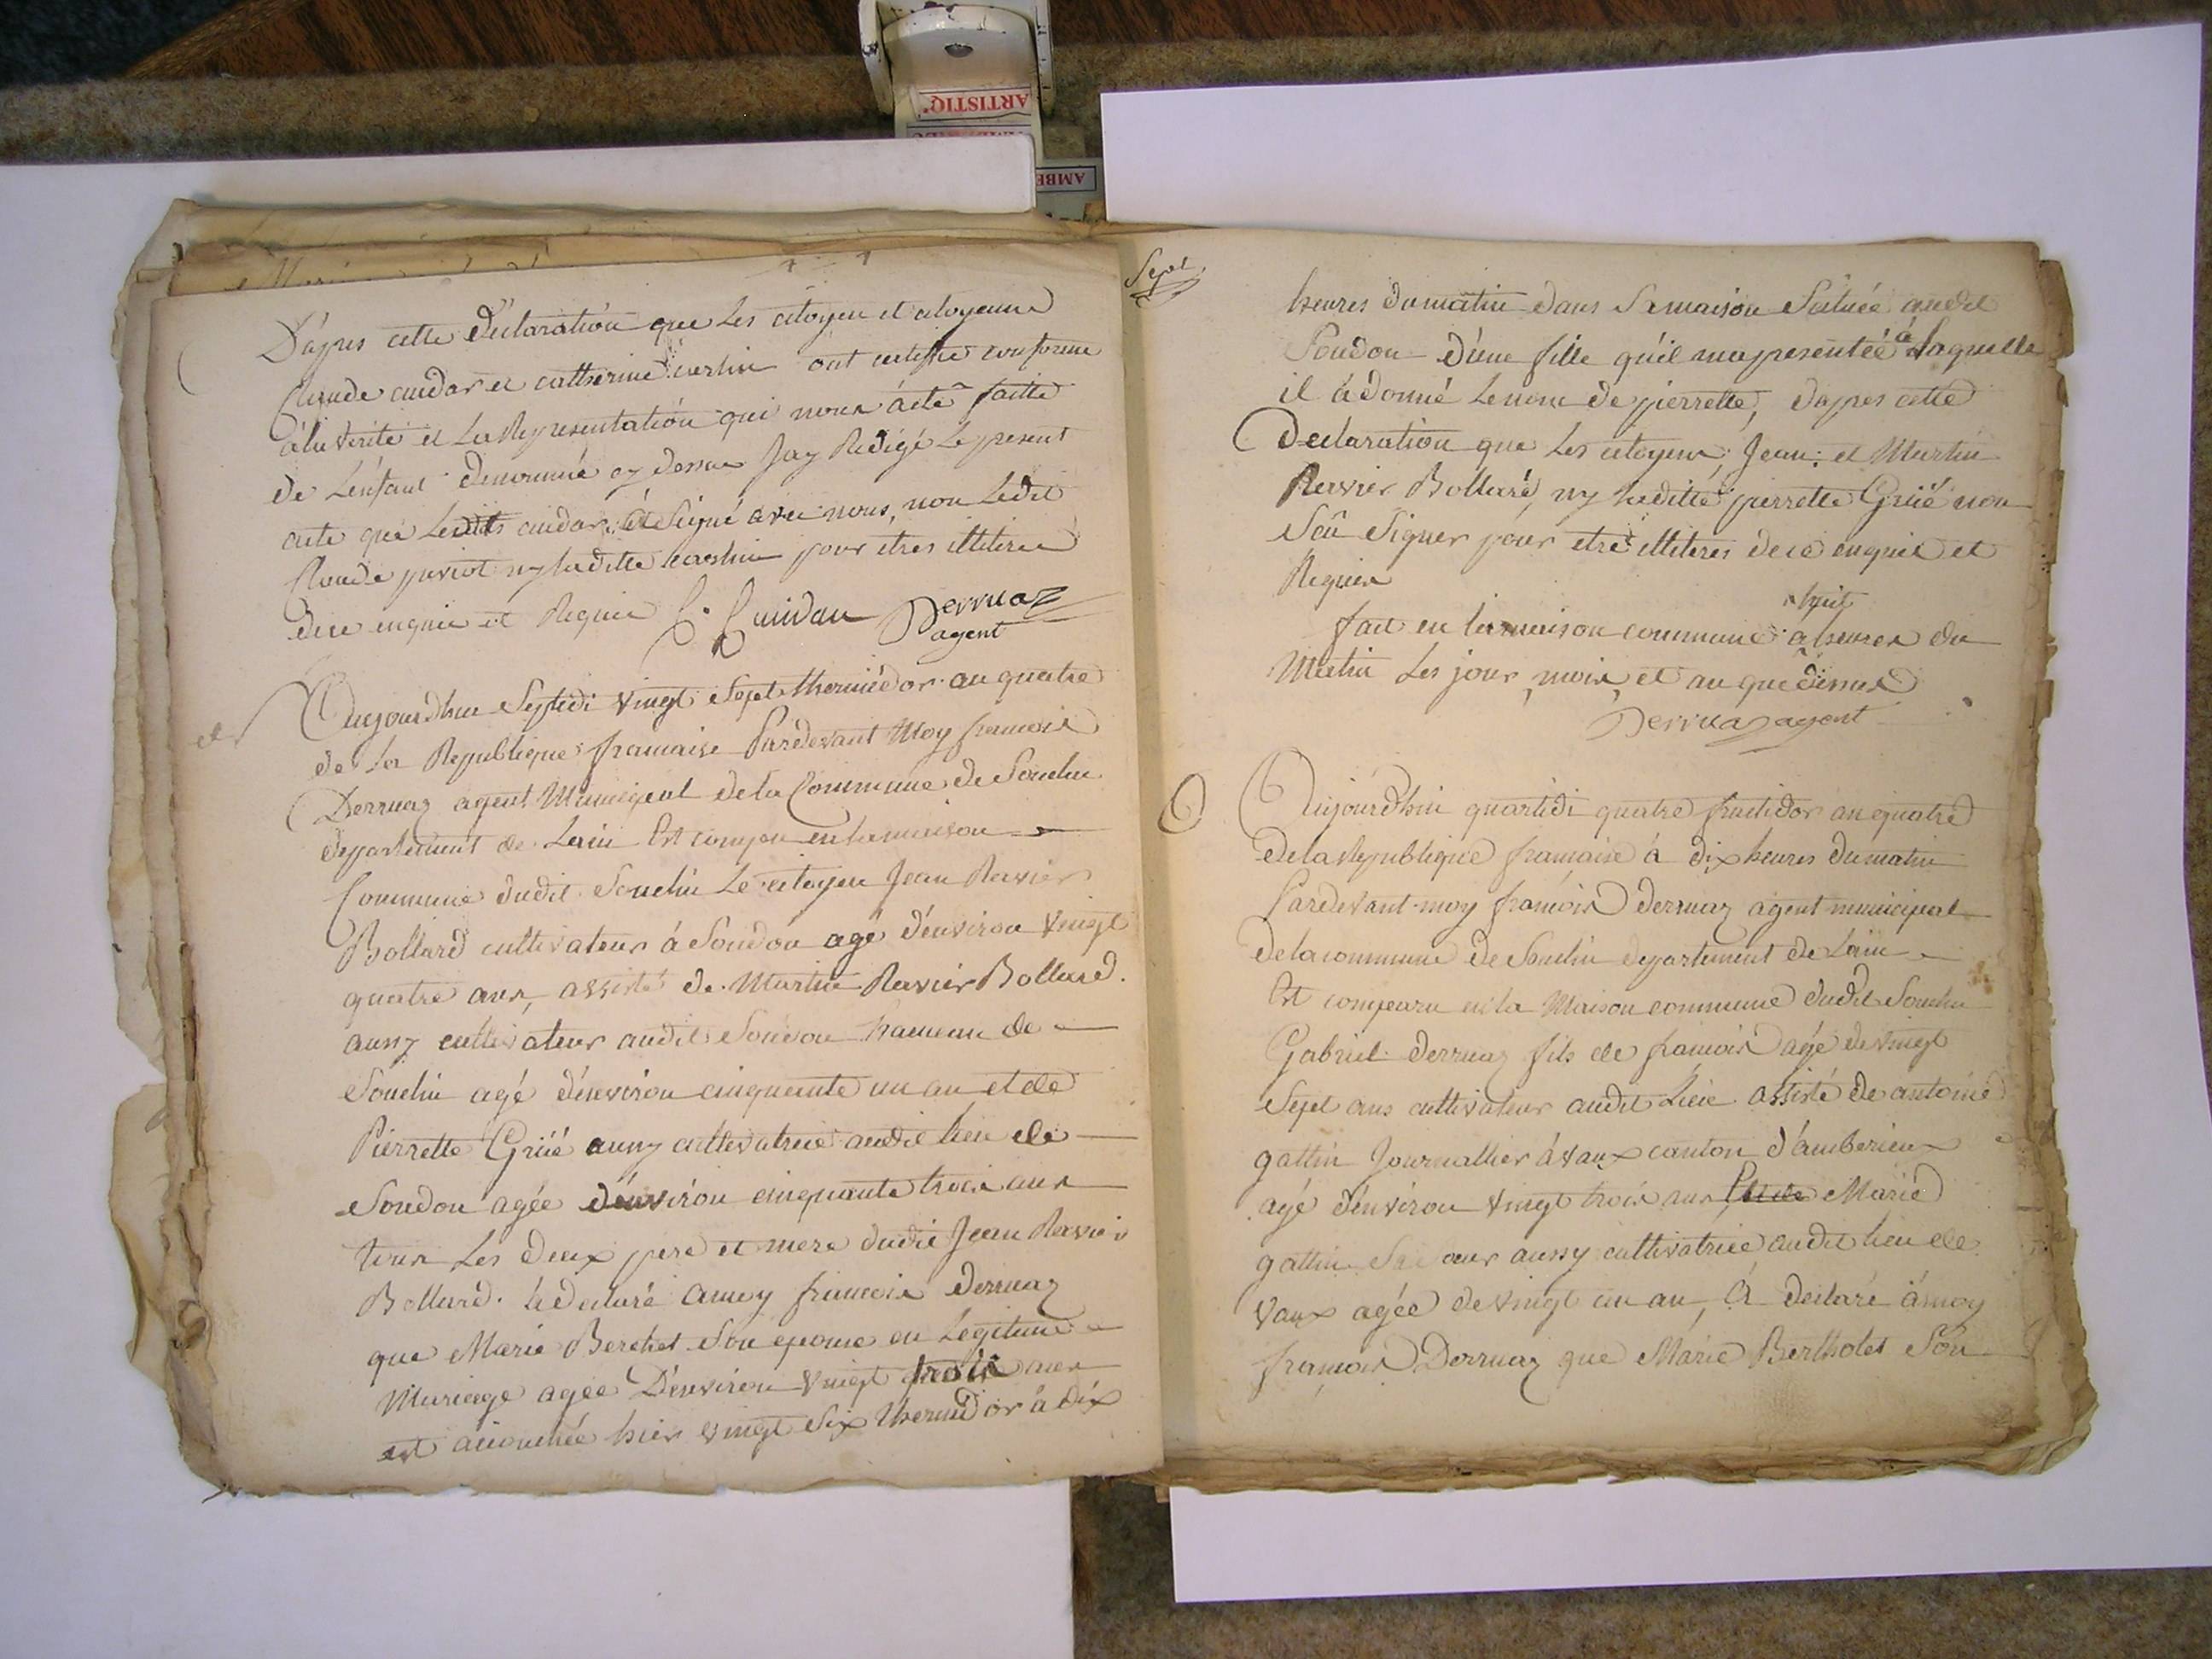 D'apres cette Declaration que Les citoyen et citoyenne
Claude cuidar et catherine carlin ont certifie conforme
à la verité et La Representation qui nous á été faitte
de L'enfant denommé cy dessus Jay Redigé Le present
acte que Ledit cuidar á Signé avec nous, non Ledit
Claude perriot ny laditte carlin pour etres illiteres
de ce enquis et Requis C. Cuidau Derruaz
agent
Aujourdhui Septidi vingt Sept thermidor an quatre
de La Republique francaise Pardevant Moy francois
Derruaz agent Municipal de la Commune de Souclin
departement de Lain Est comparu en la maison
Commune dudit Souclin Le citoyen Jean Ravier
Bollard cultivateur á Soudon agé d'environ vingt
quatre ans, assisté de Martin Ravier Bollard.
aussy cultivateur audit Soudon hameau de
Souclin agé d'environ cinquante un an et de
Pierrette Grüé aussy cultivatrice audit lieu de
Soudon agée d'environ cinquante trois ans
tous Les deux pere et mere dudit Jean Ravier
Bollard. á declaré a moy francois Derruaz
que Marie Berthet Son epouse en Legitime
Mariage agée D'environ vingt trois ans
est accouchée hier vingt Six thermidor á dix
Sept
heures du matin dans Sa maison Scituée audit
Soudon d'une fille qu'il m'a presentée á Laquelle
il á donné Le nom de pierrette, dapres cette
Declaration que Les citoyens, Jean, et Martin
Ravier Bollard, ny laditte pierrette Grüé non
Sçû Signer pour etre illiteres de ce enquis et
Requis
huit
fait en la maison commune á heures du
Matin Les jour, mois, et an que dessus
Derruaz agent
Aujourd'hui quartidi quatre fructidor an quatre
de la Republique francaise á dix heures du matin
Pardevant moy francois Derruaz agent municipal
de la commune de Souclin departement de Lain
Est comparu en la Maison commune dudit Souclin
Gabriel Derruaz fils de francois agé de vingt
Sept ans cultivateur audit Lieu assisté de antoine
gattin Journallier á vaux canton d'amberieux
agé d'environ vingt trois ans Et de Marie
gattin Sa Sœur aussy cultivatrice audit lieu de
vaux agée de vingt un an, á declaré á moy
francois Derruaz que Marie Bertholet Son